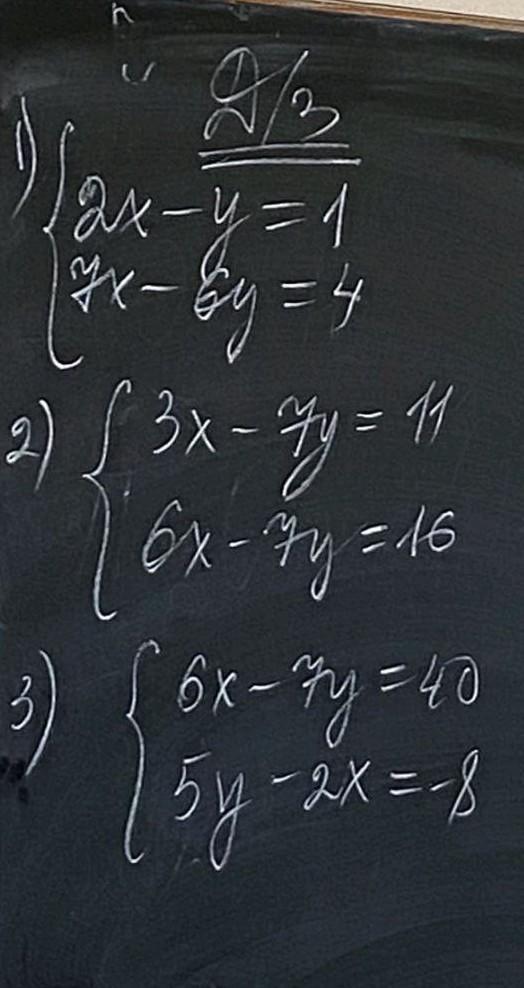 Д/З
1) { 2x - y = 1
7x - 6y = 4
2) { 3x - 7y = 11
6x - 7y = 16
3) { 6x - 7y = 40
5y - 2x = -8